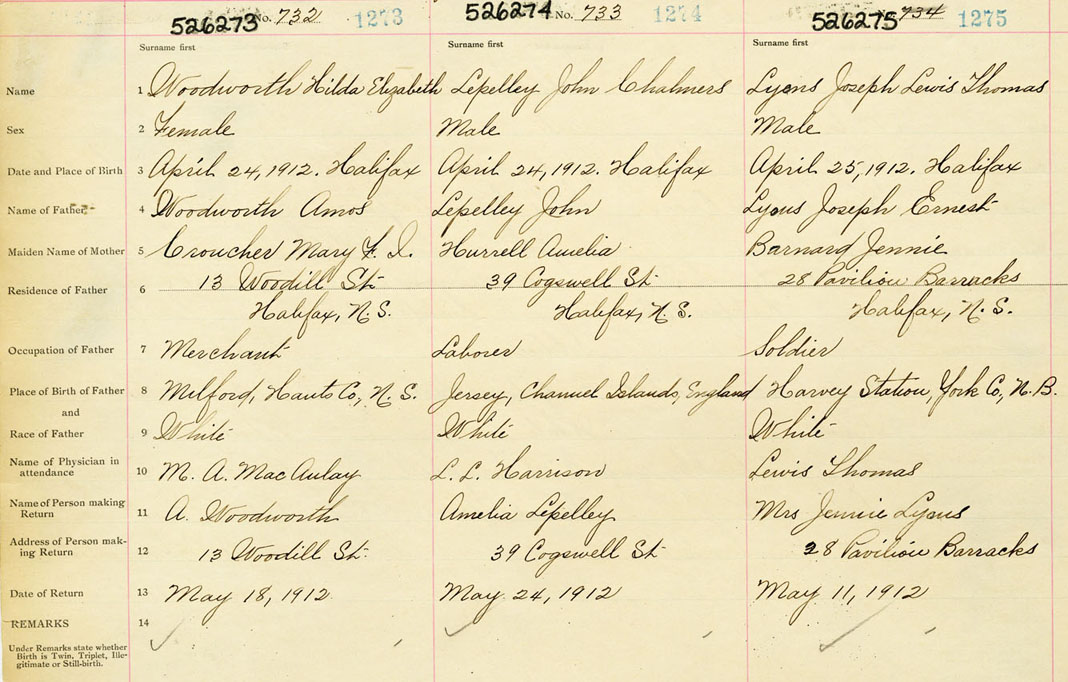 526273 No. 732 1273 526274 No. 733 1274 526275 734 1275
Surname first Surname first Surname first
Name 1 Woodworth Hilda Elizabeth Lepelley John Chalmers Lyons Joseph Lewis Thomas
Sex 2 Female Male Male
Date and Place of Birth 3 April 24, 1912. Halifax April 24, 1912. Halifax April 25, 1912. Halifax
Name of Father 4 Woodworth Amos Lepelley John Lyons Joseph Ernest
Maiden Name of Mother 5 Croucher Mary F. I. Hurrell Amelia Barnard Jennie
Residence of Father 6 13 Woodill St 39 Cogswell St 28 Pavilion Barracks
Halifax, N.S. Halifax, N.S. Halifax, N.S.
Occupation of Father 7 Merchant Laborer Soldier
Place of Birth of Father 8 Milford, Hants Co, N.S. Jersey, Channel Islands, England Harvey Station, York Co, N.B.
and
Race of Father 9 White White White
Name of Physician in attendance 10 M. A. MacAulay L. L. Harrison Lewis Thomas
Name of Person making Return 11 A. Woodworth Amelia Lepelley Mrs Jennie Lyons
Address of Person mak-
ing Return 12 13 Woodill St. 39 Cogswell St 28 Pavilion Barracks
Date of Return 13 May 18, 1912 May 24, 1912 May 11, 1912
REMARKS 14
Under Remarks state whether
Birth is Twin, Triplet, Ille-
gitimate or Still-birth.